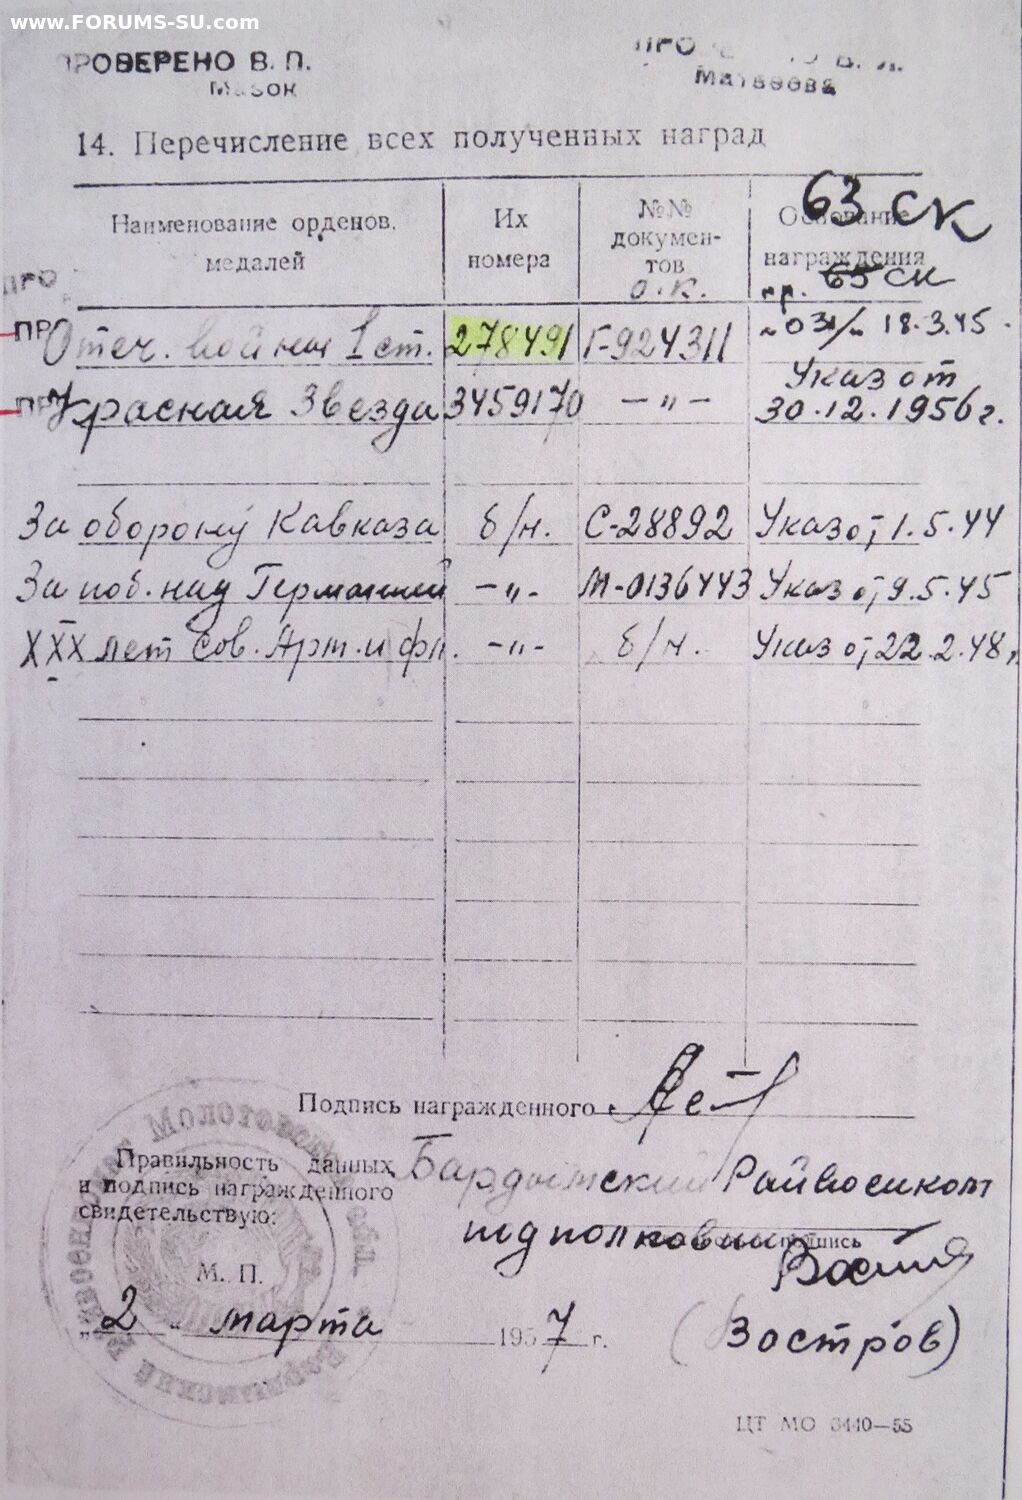 www.FORUMS-SU.com
ПРОВЕРЕНО В. П.
Мазок
Матвеева
14. Перечисление всех полученных наград
Наименование орденов, медалей
Их номера
№№ документов
о.к.
Основание награждения
63 СК
пр. 65 СК
ПРО
ПРО Отеч. войны 1 ст. 278491 Г-924311 №031/н 18.3.45.
ПРО Красная Звезда 3459170 —"— Указ от 30.12.1956 г.
За оборону Кавказа б/н. С-28892 Указ от 1.5.44
За поб. над Германией —"— М-0136443 Указ от 9.5.45
XXX лет Сов. Арм. и фл. —"— б/н. Указ от 22.2.48 г.
Подпись награжденного
Правильность данных
и подпись награжденного
свидетельствую:
Бардымский Райвоенком
подполковник
подпись
М. П.
„2" марта 1957 г.
(Востров)
ЦТ МО 3440—55